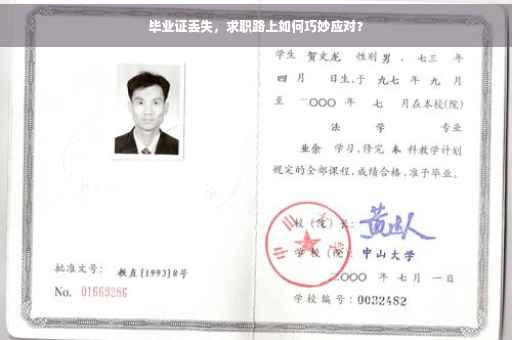 毕业证丢失，求职路上如何巧妙应对？
学生 贺文龙 性别 男 、七三 年
四 月 日生,于 九七 年 九 月
至 二〇〇〇 年 七 月在本校(院)
法 学 专业
业余 学习,修完 本 科教学计划
规定的全部课程,成绩合格,准予毕业。
校 (院) 长:
学 校 (院) 中山大学
二〇〇〇 年 七 月 一 日
学校编号: 0032482
批准文号: 教直[1993]8号
No. 01669286